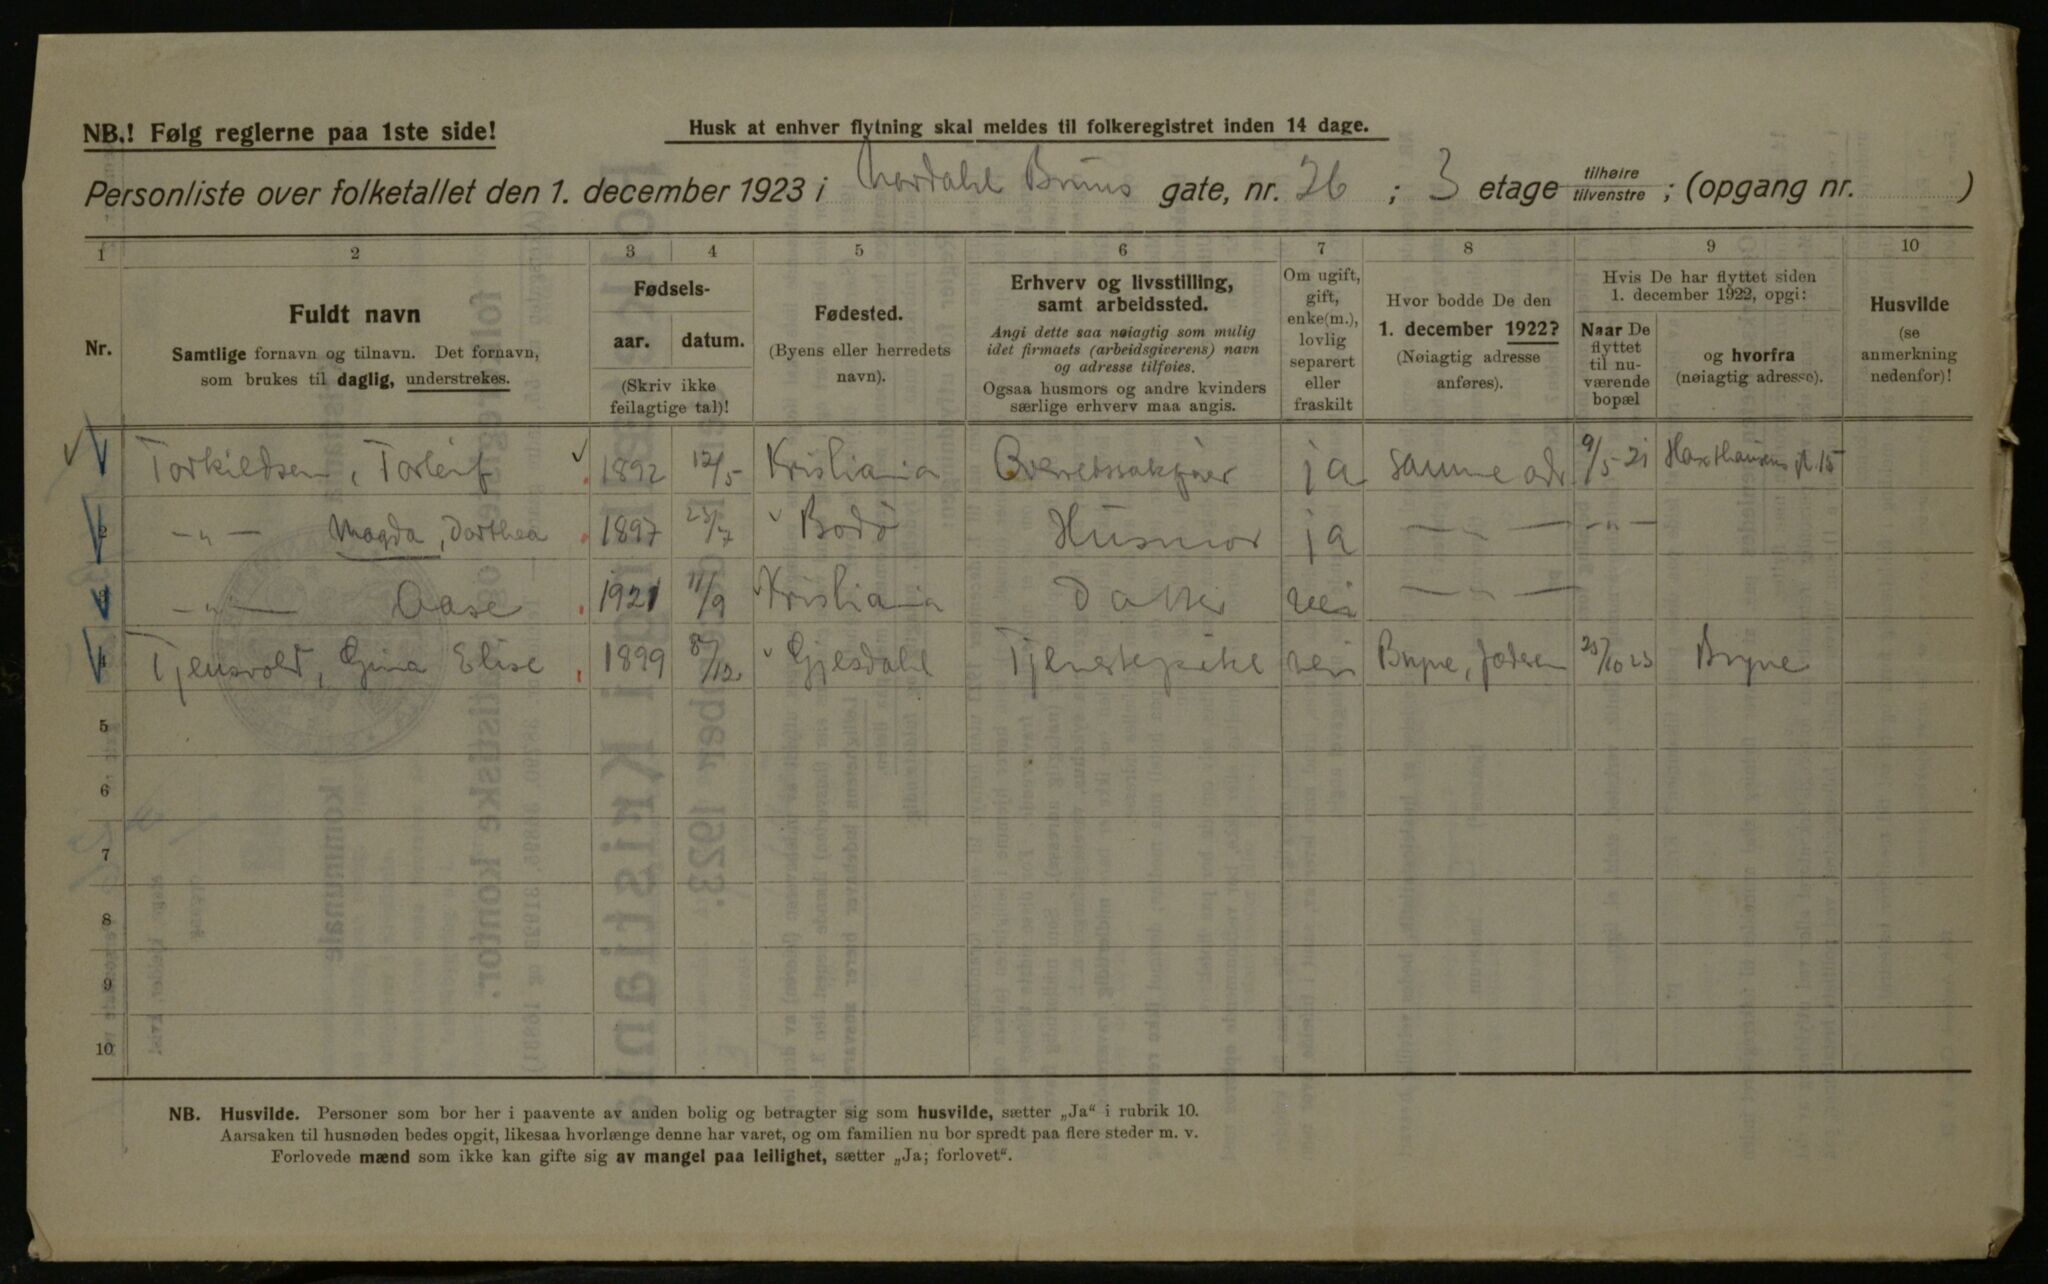 NB.! Følg reglerne paa 1ste side!
Husk at enhver flytning skal meldes til folkeregistret inden 14 dage.
Personliste over folketallet den 1. december 1923 i Nordahl Bruns gate, nr. 26 ; 3 etage tilhøire tilvenstre ; (opgang nr. )
1 2 3 4 5 6 7 8 9 10
Nr.
Fuldt navn
Samtlige fornavn og tilnavn. Det fornavn,
som brukes til daglig, understrekes.
Fødsels-
aar. datum.
(Skriv ikke
feilagtige tal)!
Fødested.
(Byens eller herredets
navn).
Erhverv og livsstilling,
samt arbeidssted.
Angi dette saa nøiagtig som mulig
idet firmaets (arbeidsgiverens) navn
og adresse tilføies.
Ogsaa husmors og andre kvinders
særlige erhverv maa angis.
Om ugift,
gift,
enke(m.),
lovlig
separert
eller
fraskilt
Hvor bodde De den
1. december 1922?
(Nøiagtig adresse
anføres).
Hvis De har flyttet siden
1. december 1922, opgi:
Naar De
flyttet
til nu-
værende
bopæl
og hvorfra
(nøiagtig adresse).
Husvilde
(se
anmerkning
nedenfor)!
1 Torkildsen, Torleif 1892 12/5 Kristiania Overretssakfører ja samme adr 9/5 21 Haxthausens gt. 15
2 —„— Magda, Dorthea 1897 23/7 Bodø Husmor ja —„— —„—
3 —„— Aase 1921 11/9 Kristiania Datter nei —„—
4 Tjensvold, Gina Elise 1899 8/12 Gjesdahl Tjenestepike nei Bryne, Jæderen 25/10 23 Bryne
5
6
7
8
9
10
NB. Husvilde. Personer som bor her i paavente av anden bolig og betragter sig som husvilde, sætter „Ja“ i rubrik 10.
Aarsaken til husnøden bedes opgit, likesaa hvorlænge denne har varet, og om familien nu bor spredt paa flere steder m. v.
Forlovede mænd som ikke kan gifte sig av mangel paa leilighet, sætter „Ja; forlovet“.